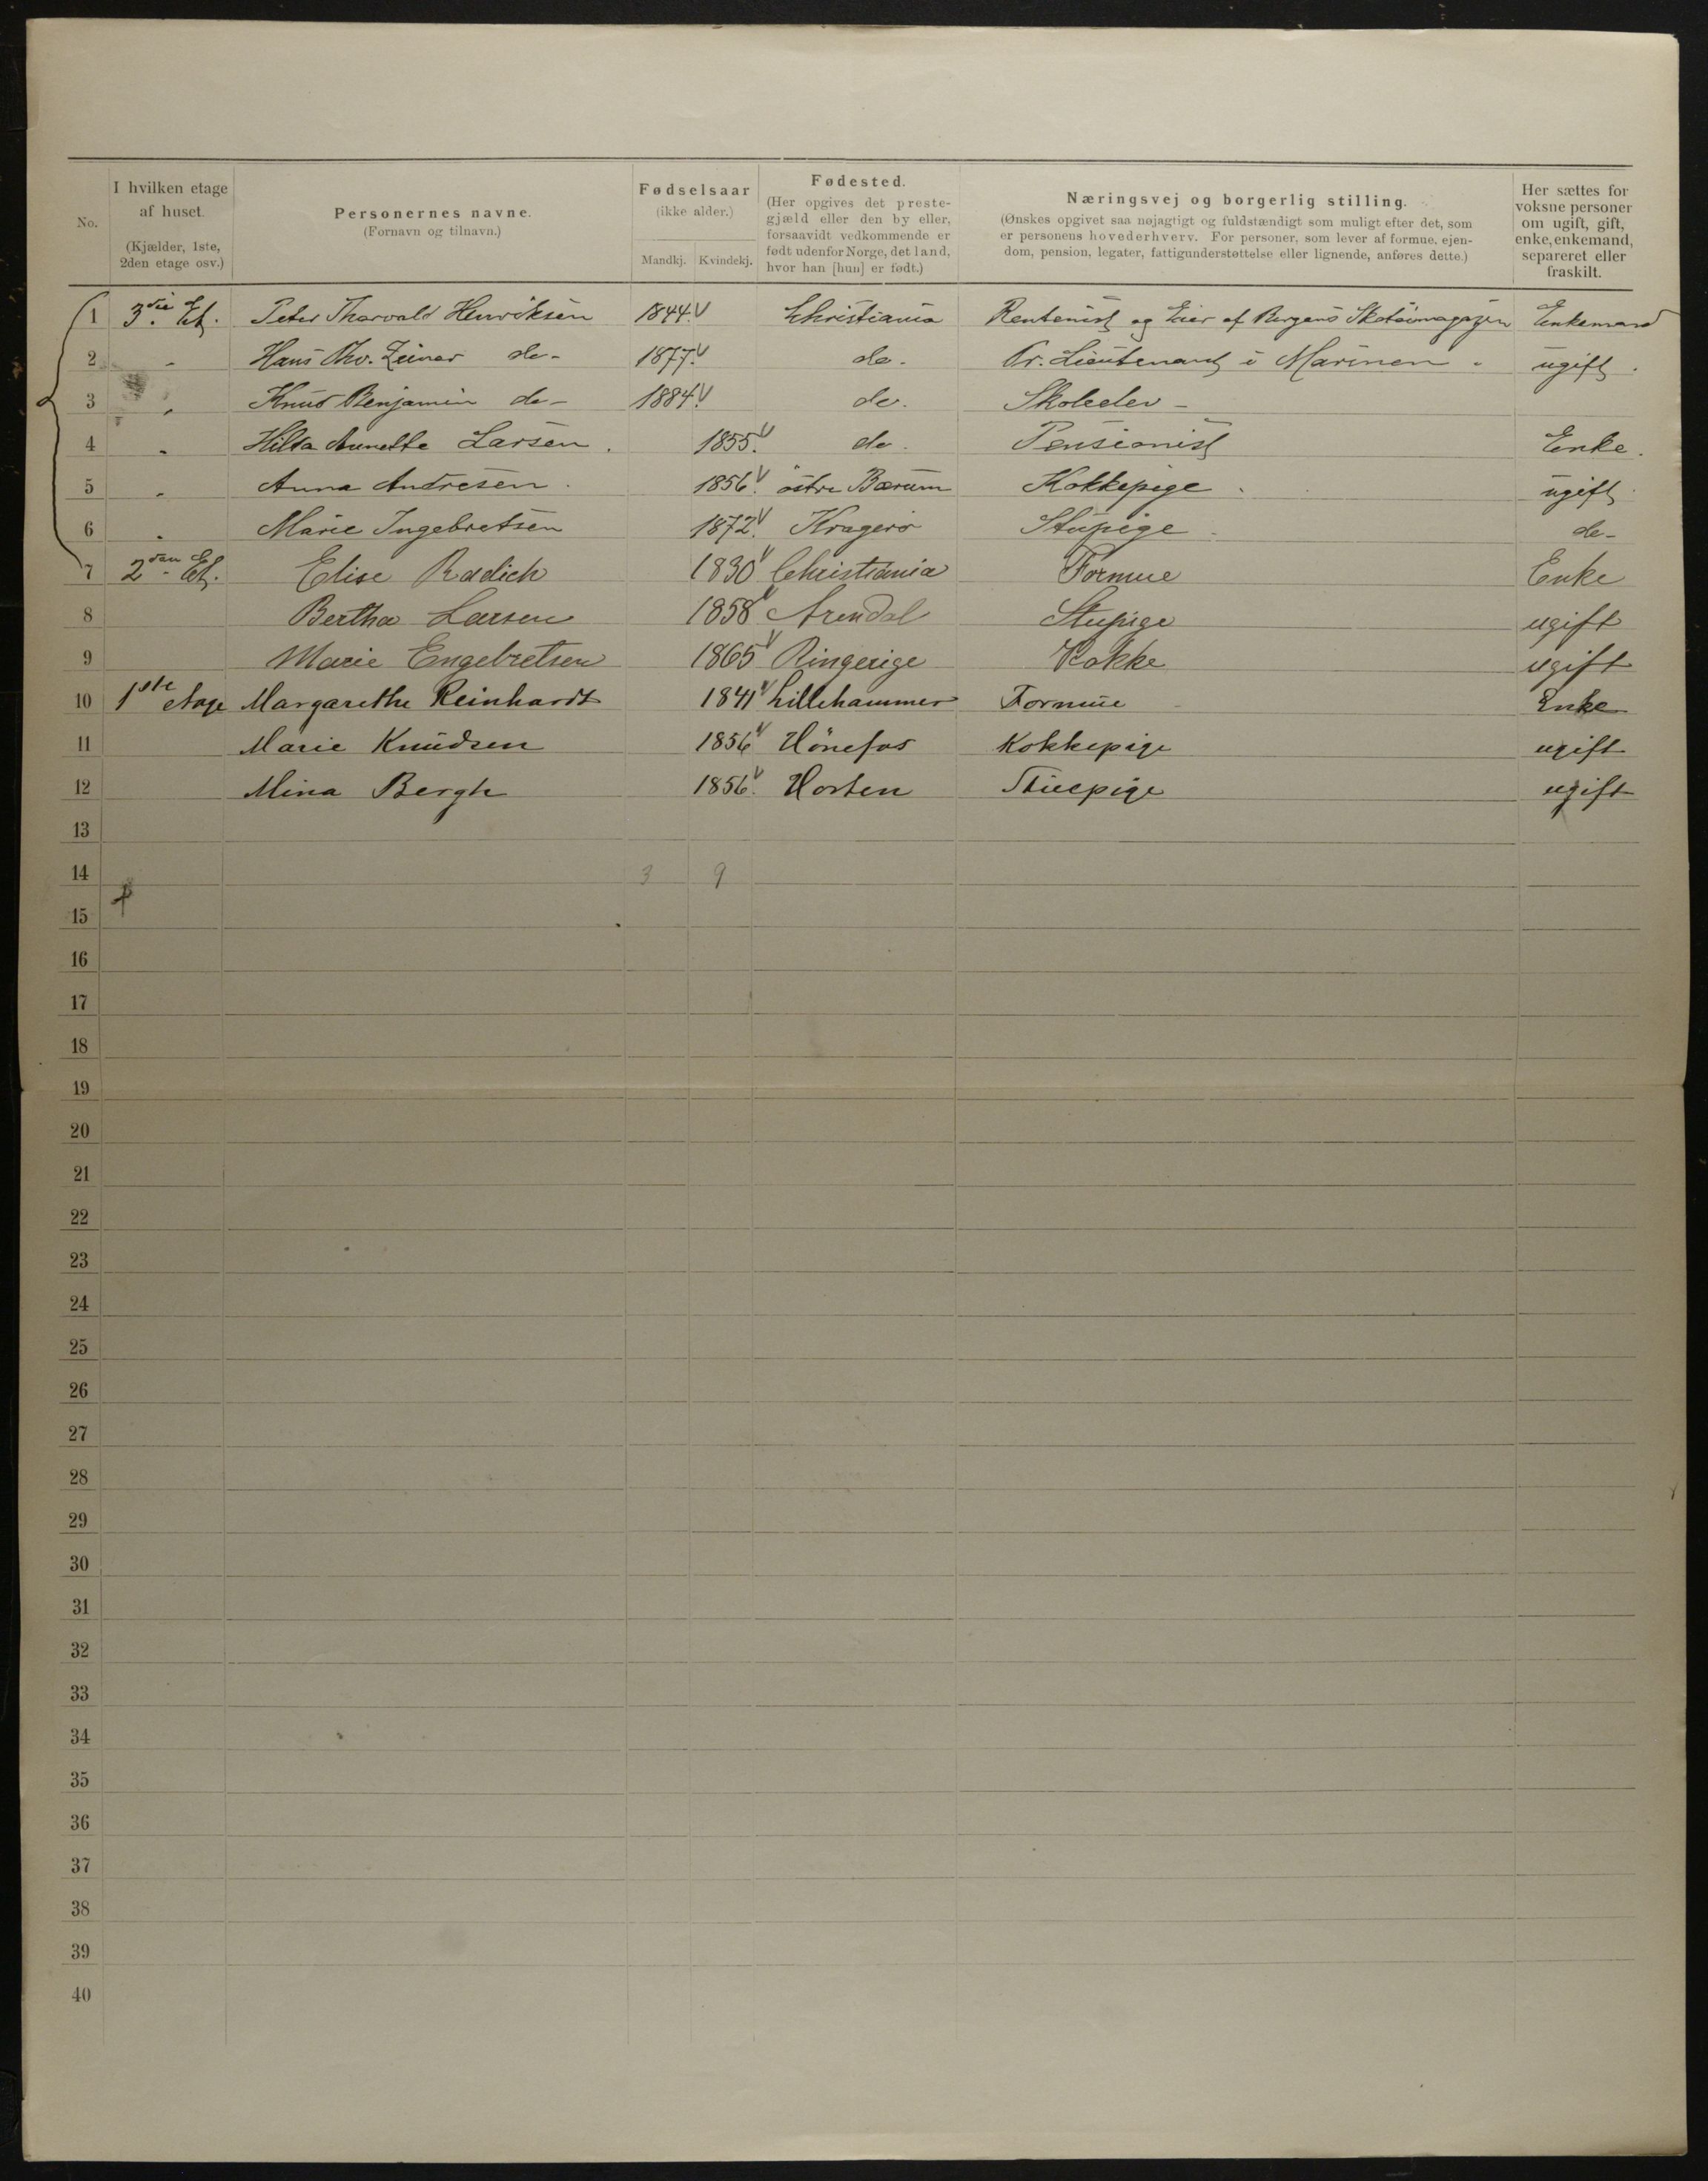 No. | I hvilken etage af huset. (Kjælder, 1ste, 2den etage osv.) | Personernes navne. (Fornavn og tilnavn.) | Fødselsaar (ikke alder.) Mandkj. Kvindekj. | Fødested. (Her opgives det prestegjæld eller den by eller, forsaavidt vedkommende er født udenfor Norge, det land, hvor han [hun] er født.) | Næringsvej og borgerlig stilling. (Ønskes opgivet saa nøjagtigt og fuldstændigt som muligt efter det, som er personens hovederhverv. For personer, som lever af formue, ejendom, pension, legater, fattigunderstøttelse eller lignende, anføres dette.) | Her sættes for voksne personer om ugift, gift, enke, enkemand, separeret eller fraskilt.
1 3die Et. Peter Thorvald Henriksen 1844. Christiania Rentenist og Eier af Bergens Skotøimagazin Enkemand
2 " Hans Thv. do- 1877. do. Pr. Lieutenant i Marinen. ugift.
3 " Knud Benjamin do- 1884. do. Skoleelev -
4 " Hilda Annette Larsen. 1855. do. Pensionist Enke.
5 " Anna Andresen. 1856. östre Bærum Kokkepige. ugift.
6 " Marie Ingebretsen 1872. Kragerö Stupige. do-
7 2den Et. Elise Radich 1830 Christiania Formue Enke
8 Bertha Larsen 1858 Arendal Stupige ugift
9 Marie Engebretsen 1865 Ringerige Kokke ugift
10 1ste Etage Margarethe Reinhardt 1841 Lillehammer Formue Enke
11 Marie Knudsen 1856 Hönefos Kokkepige ugift
12 Mina Bergh 1856. Horten Stuepige ugift
13
14 3 9
15
16
17
18
19
20
21
22
23
24
25
26
27
28
29
30
31
32
33
34
35
36
37
38
39
40